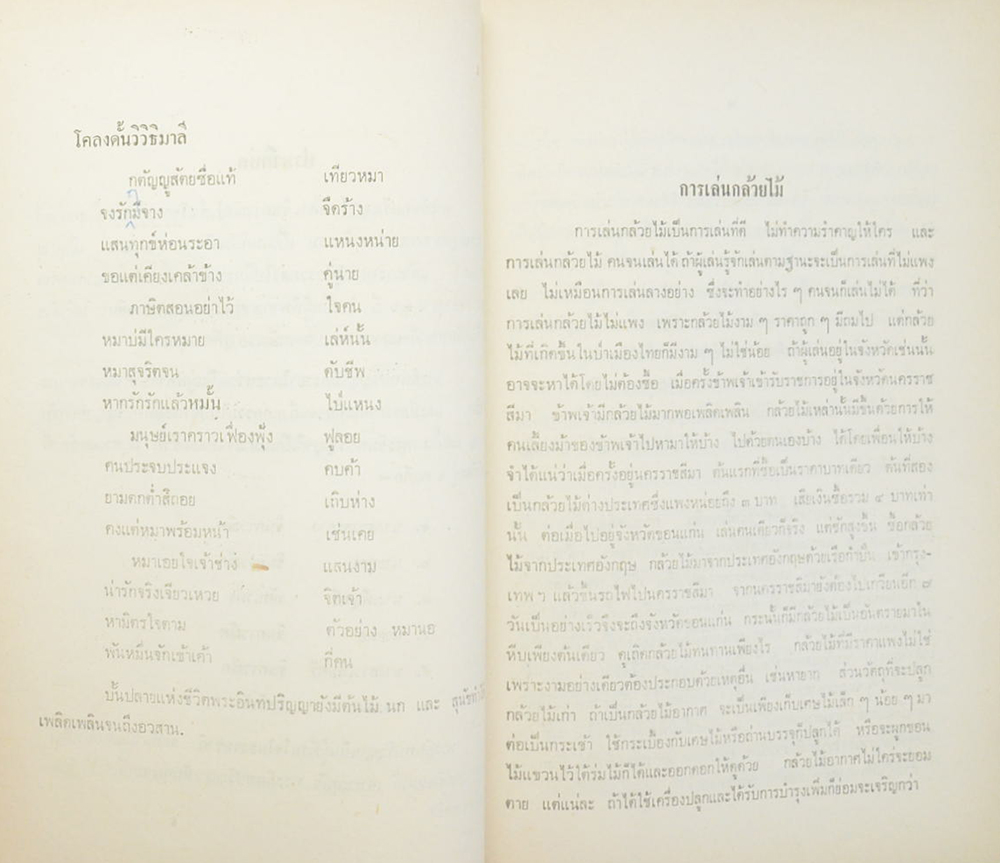 โคลงดั้นวิวิธิมาลี
กตัญญูสัตยซื่อแท้ เทียวหมา
จงรักมีจาง จืดร้าง
แสนทุกข์ห่อนระอา แหนงหน่าย
ขอแต่เคียงเคล้าข้าง คู่นาย
ภาษิตสอนอย่าไว้ ใจคน
หมาบ่มีใครหมาย เล่ห์นั้น
หมาสุจริตจน ดับชีพ
หากรักรักแล้วหมั้น ไป่แหนง
มนุษย์เราคราวเฟื่องฟุ้ง ฟูลอย
คนประจบประแจง คบค้า
ยามตกต่ำสีถอย เถิบห่าง
คงแต่หมาพร้อมหน้า เช่นเคย
หมาเอยใจเจ้าช่าง แสนงาม
น่ารักจริงเจียวเหวย จิตเจ้า
หามิตรใจตาม ตัวอย่าง หมานอ
พันหมื่นจักเข้าเค้า กี่คน
บั้นปลายแห่งชีวิตพระอินทปริญญายังมีต้นไม้ นก และ
เพลิดเพลินจนถึงอวสาน.
การเล่นกล้วยไม้
การเล่นกล้วยไม้เป็นการเล่นที่ดี ไม่ทำความรำคาญให้ใคร และ
การเล่นกล้วยไม้ คนจนเล่นได้ ถ้าผู้เล่นรู้จักเล่นตามฐานะจะเป็นการเล่นที่ไม่แพง
เลย ไม่เหมือนการเล่นลางอย่าง ซึ่งจะทำอย่างไร ๆ คนจนก็เล่นไม่ได้ ที่ว่า
การเล่นกล้วยไม้ไม่แพง เพราะกล้วยไม้งาม ๆ ราคาถูก ๆ มีถมไป แต่กล้วย
ไม้ที่เกิดขึ้นในป่าเมืองไทยก็มีงาม ๆ ไม่ใช่น้อย ถ้าผู้เล่นอยู่ในจังหวัดเช่นนั้น
อาจจะหาได้โดยไม่ต้องซื้อ เมื่อครั้งข้าพเจ้าเข้ารับราชการอยู่ในจังหวัดนครราช
สีมา ข้าพเจ้ามีกล้วยไม้มากพอเพลิดเพลิน กล้วยไม้เหล่านั้นมีขึ้นด้วยการให้
คนเลี้ยงม้าของข้าพเจ้าไปหามาให้บ้าง ไปด้วยตนเองบ้าง ได้โดยเพื่อนให้บ้าง
จำได้แน่ว่าเมื่อครั้งอยู่นครราชสีมา ต้นแรกที่ซื้อเป็นราคาบาทเดียว ต้นที่สอง
เป็นกล้วยไม้ต่างประเทศซึ่งแพงหน่อยถึง ๓ บาท เสียเงินซื้อรวม ๔ บาทเท่า
นั้น ต่อเมื่อไปอยู่จังหวัดขอนแก่น เล่นคนเดียวก็จริง แต่ชักสูงขึ้น ซื้อกล้วย
ไม้จากประเทศอังกฤษ กล้วยไม้มาจากประเทศอังกฤษด้วยเรือกำปั่น เข้ากรุง-
เทพ ฯ แล้วขึ้นรถไฟไปนครราชสีมา จากนครราชสีมายังต้องไปเกวียนอีก ๗
วันเป็นอย่างเร็วจึงจะถึงจังหวัดขอนแก่น กระนั้นก็มีกล้วยไม้เป็นอันตรายมาใน
หีบเพียงต้นเดียว ดูเถิดกล้วยไม้ทนทานเพียงไร กล้วยไม้ที่มีราคาแพงไม่ใช่
เพราะงามอย่างเดียวต้องประกอบด้วยเหตุอื่น เช่นหายาก ส่วนวัตถุที่จะปลูก
กล้วยไม้เก่า ถ้าเป็นกล้วยไม้อากาศ จะเป็นเพียงเก็บเศษไม้เล็ก ๆ น้อย ๆ มา
ต่อเป็นกระเช้า ใช้กระเบื้องกับเศษไม้หรือถ่านบรรจุก็ปลูกได้ หรือจะผูกขอน
ไม้แขวนไว้ใต้ร่มไม้ก็ได้และออกดอกให้ดูด้วย กล้วยไม้อากาศไม่ใคร่จะยอม
ตาย แต่แน่ละ ถ้าได้ใช้เครื่องปลูกและได้รับการบำรุงเพิ่มก็ย่อมจะเจริญกว่า